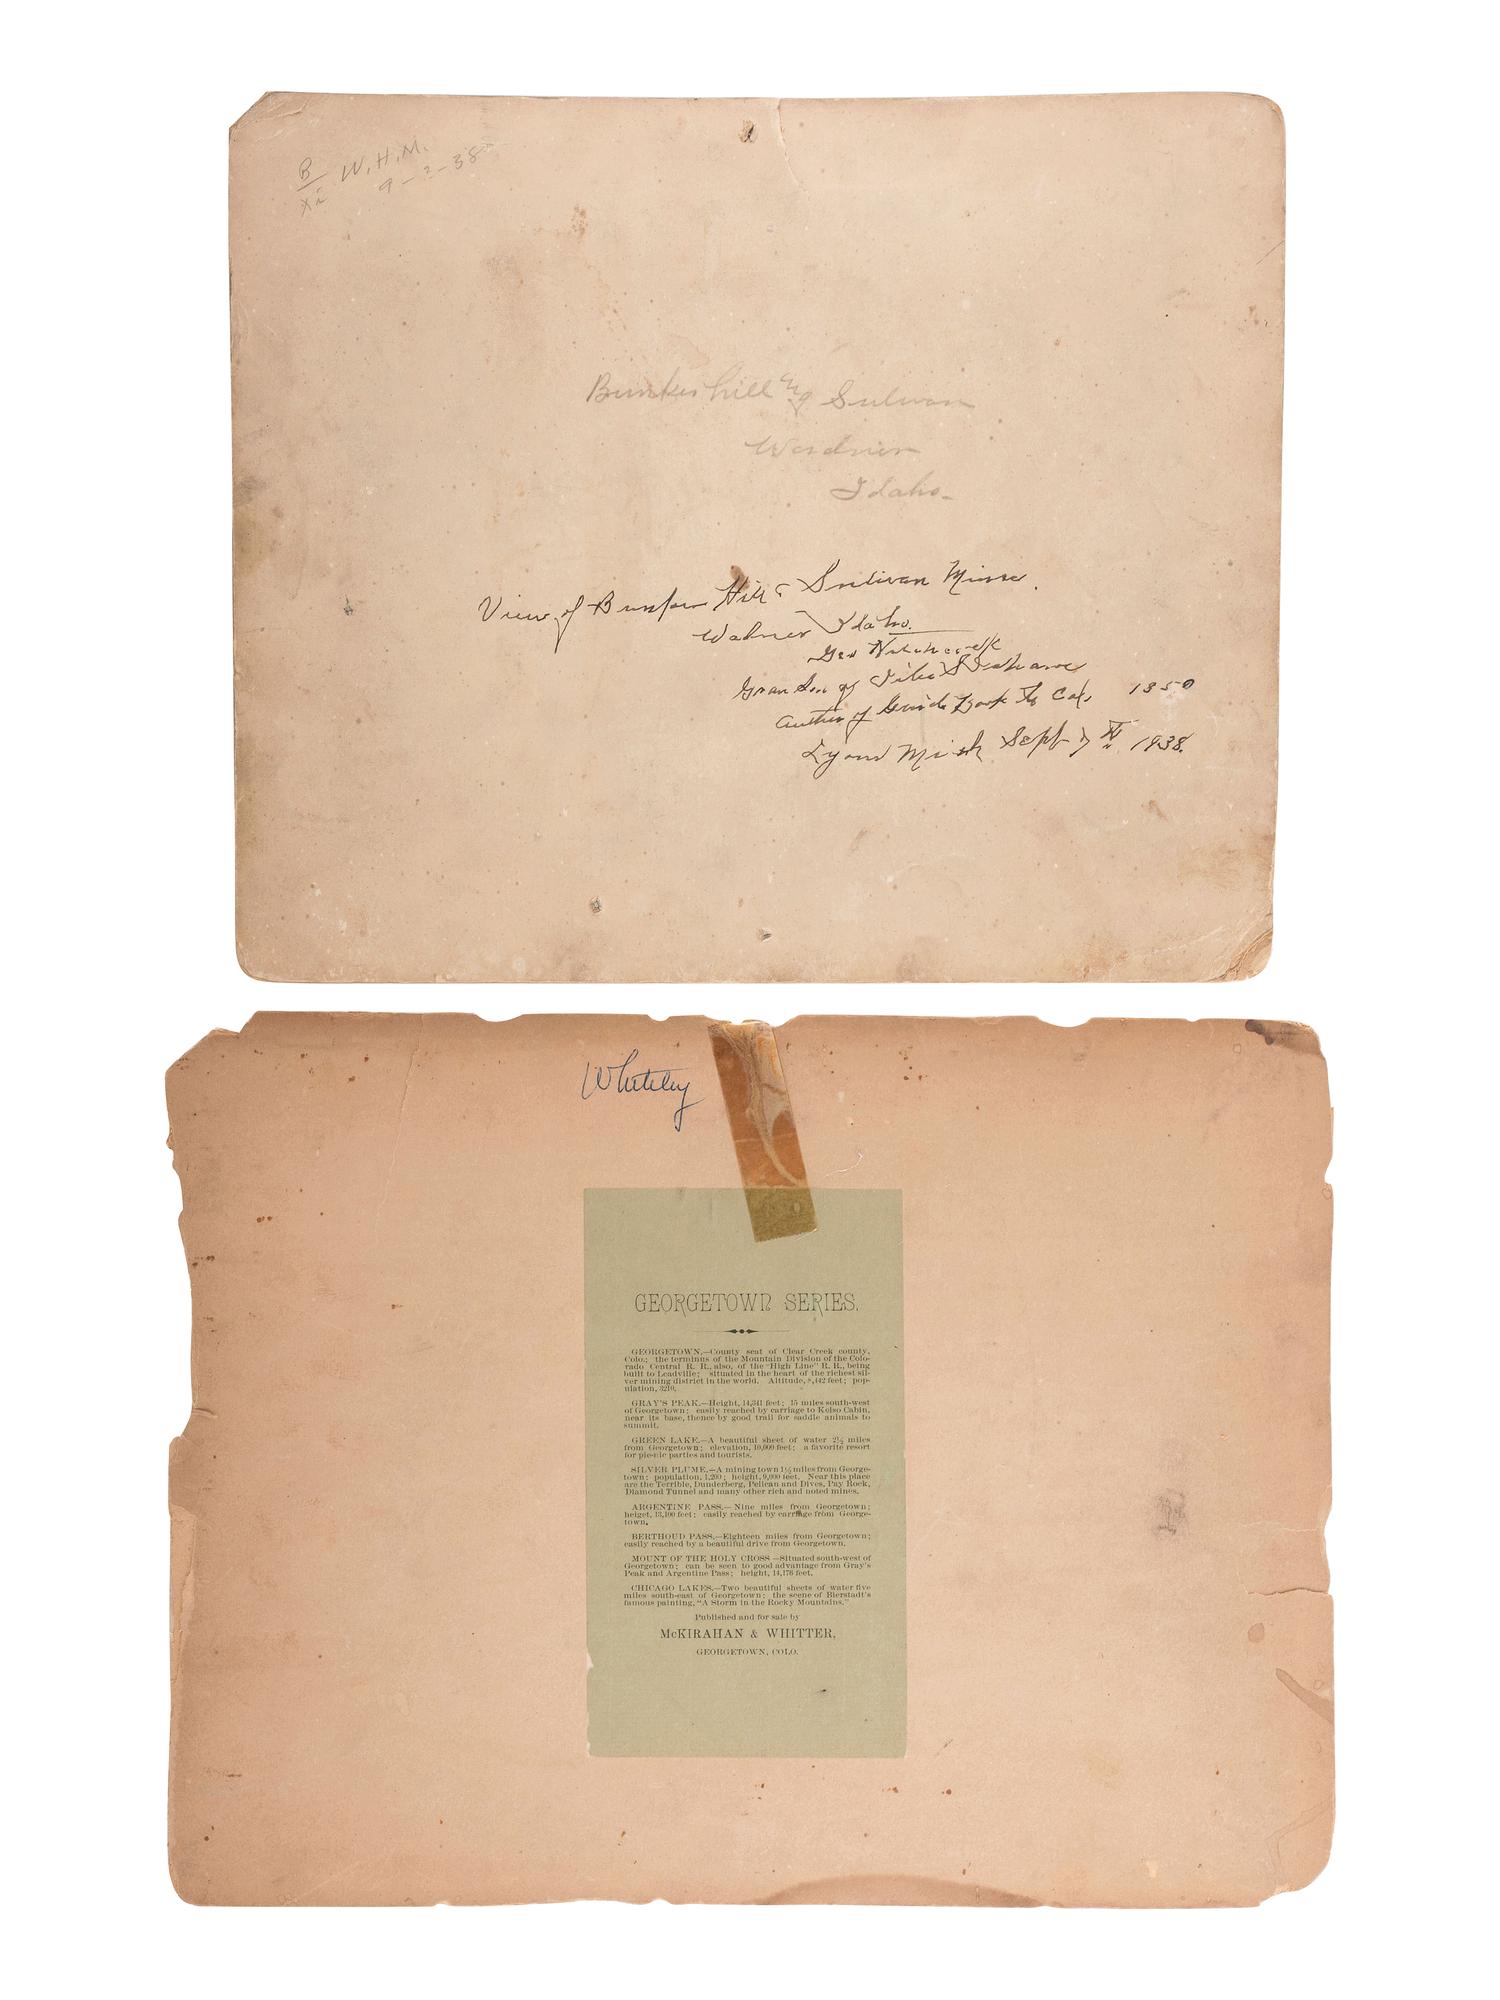 B W.H.M.
9-2-38
Bunkerhill & Sulivan
Wardner
Idaho.
View of Bunker Hill & Sulivan Mine.
Wabner Idaho.
Geo Hitchcock
Grandson of
Author of Guide Book to Cal. 1850
Lyons Mich Sept 7 1938.
Whiteley
GEORGETOWN SERIES.
GEORGETOWN,—County seat of Clear Creek county,
Colo.; the terminus of the Mountain Division of the Colo-
rado Central R. R., also, of the "High Line" R. R., being
built to Leadville; situated in the heart of the richest sil-
ver mining district in the world. Altitude, 8,442 feet; pop-
ulation, 3210.
GRAY'S PEAK.—Height, 14,341 feet; 15 miles south-west
of Georgetown; easily reached by carriage to Kelso Cabin,
near its base, thence by good trail for saddle animals to
summit.
GREEN LAKE.—A beautiful sheet of water 2½ miles
from Georgetown; elevation, 10,000 feet; a favorite resort
for pic-nic parties and tourists.
SILVER PLUME.—A mining town 1½ miles from George-
town; population, 1,200; height, 9,000 feet. Near this place
are the Terrible, Dunderberg, Pelican and Dives, Pay Rock,
Diamond Tunnel and many other rich and noted mines.
ARGENTINE PASS.—Nine miles from Georgetown;
heiget, 13,100 feet; easily reached by carriage from George-
town.
BERTHOUD PASS.—Eighteen miles from Georgetown;
easily reached by a beautiful drive from Georgetown.
MOUNT OF THE HOLY CROSS—Situated south-west of
Georgetown; can be seen to good advantage from Gray's
Peak and Argentine Pass; height, 14,176 feet.
CHICAGO LAKES.—Two beautiful sheets of water five
miles south-east of Georgetown; the scene of Bierstadt's
famous painting, "A Storm in the Rocky Mountains."
Published and for sale by
McKIRAHAN & WHITTER,
GEORGETOWN, COLO.